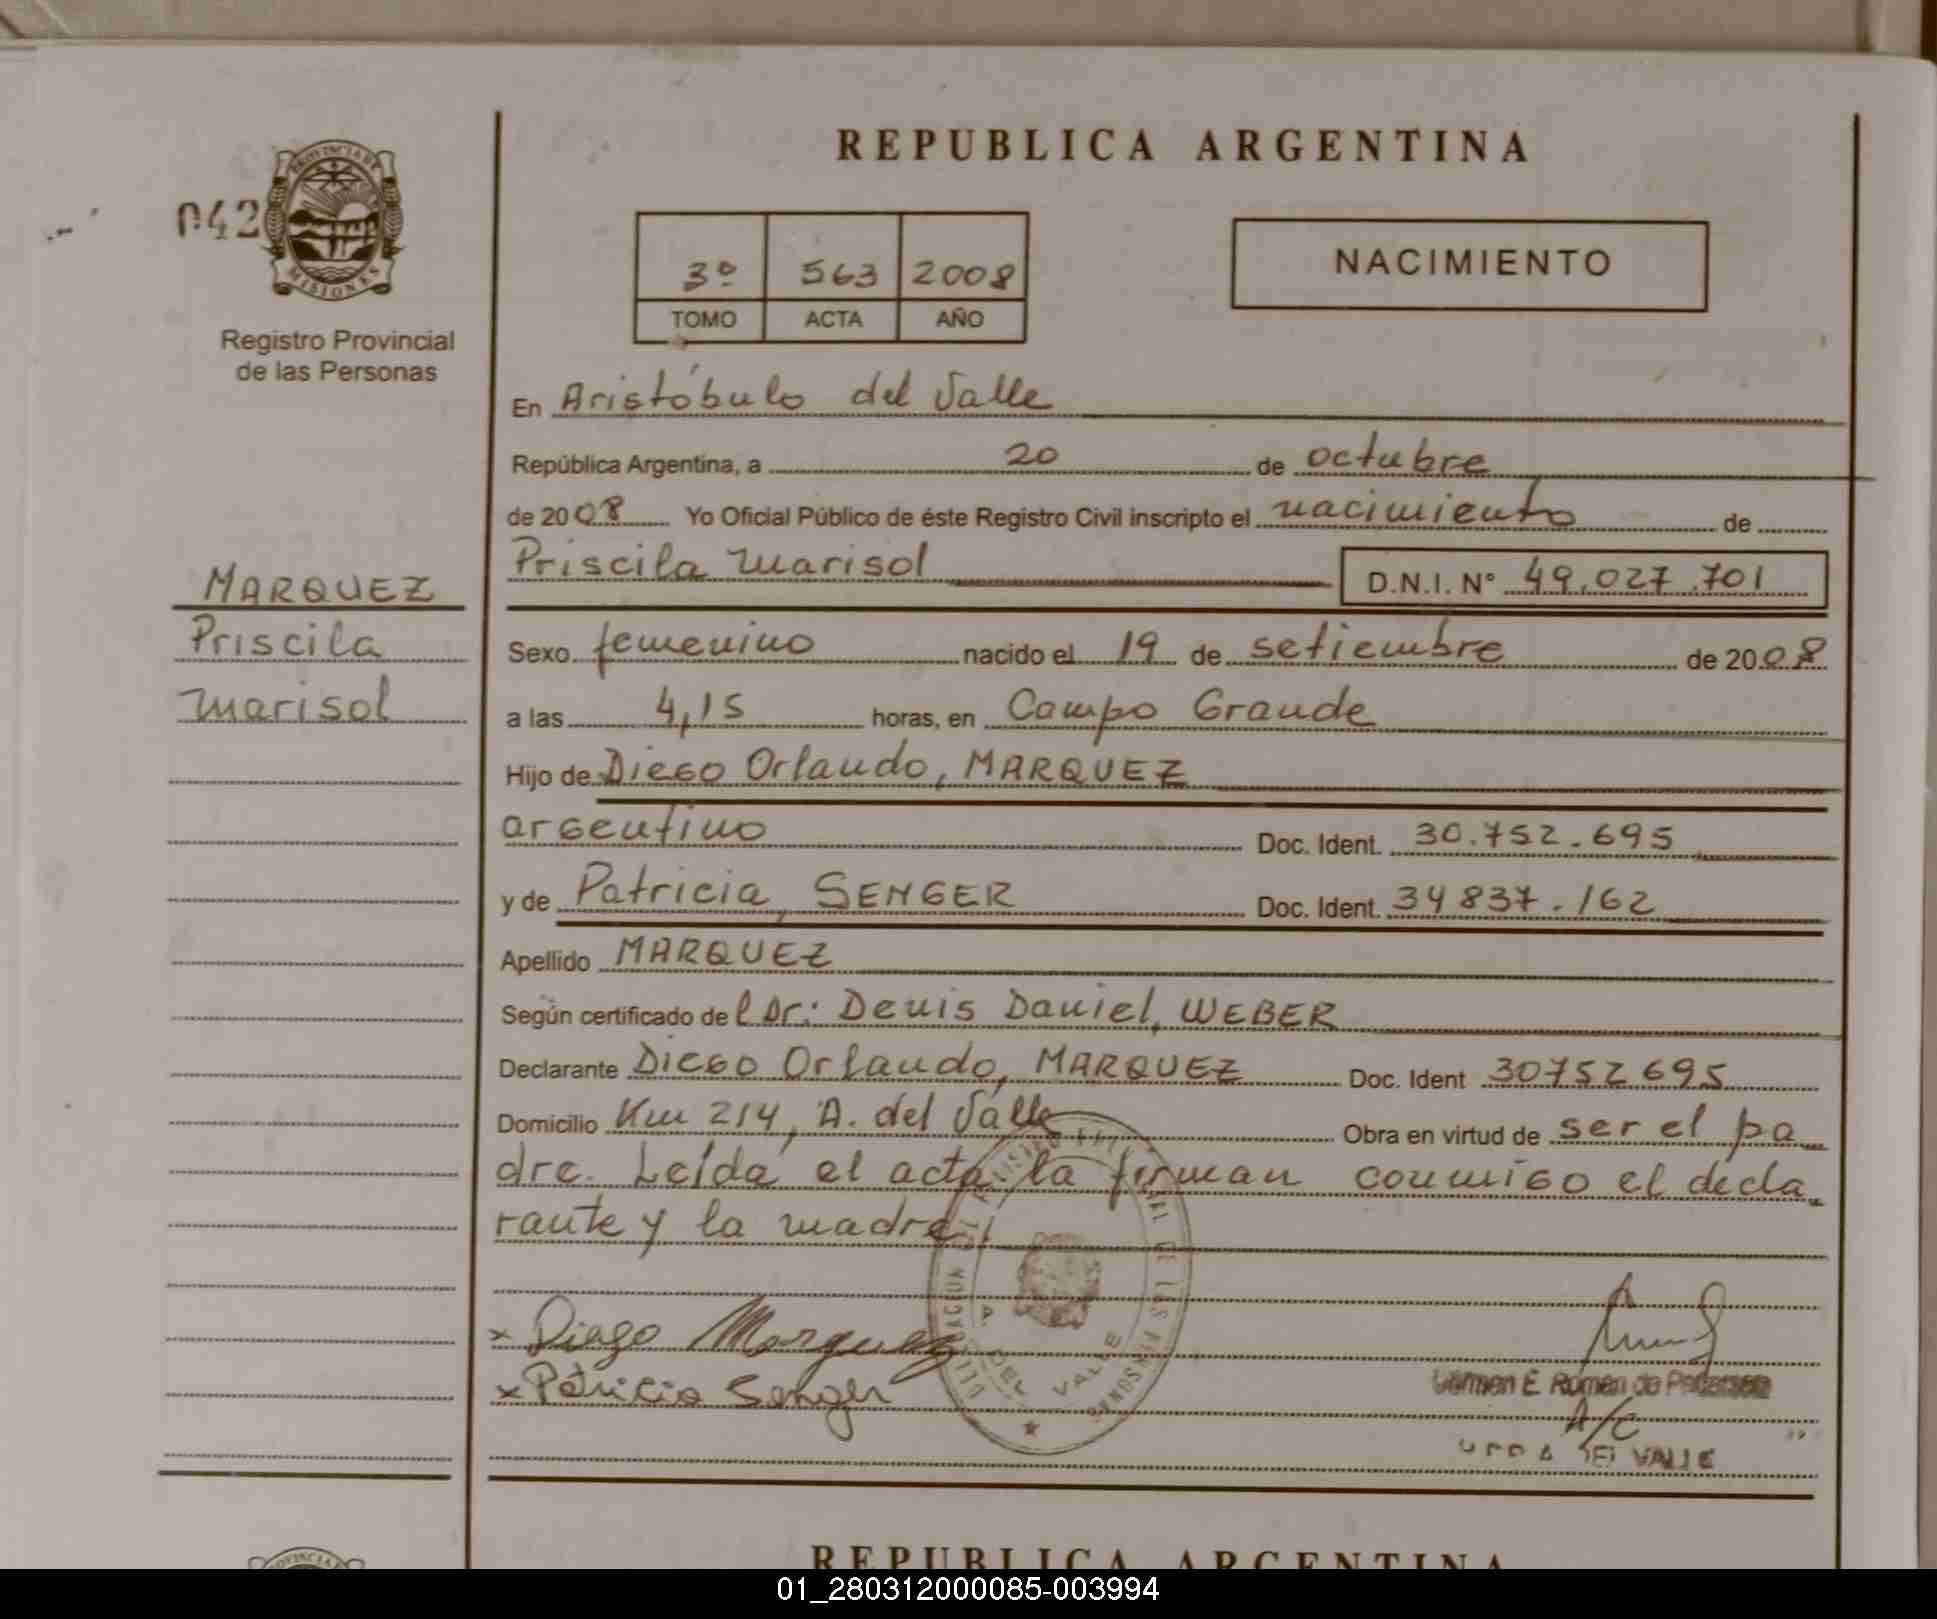 REPUBLICA ARGENTINA
042
PROVINCIA DE
MISIONES
Registro Provincial
de las Personas
3º 563 2008
TOMO ACTA AÑO
NACIMIENTO
En Aristóbulo del Valle
República Argentina, a 20 de octubre
de 2008 Yo Oficial Público de éste Registro Civil inscripto el nacimiento de
Priscila Marisol D.N.I. Nº 49.027.701
MARQUEZ
Priscila
Marisol
Sexo femenino nacido el 19 de setiembre de 2008
a las 4,15 horas, en Campo Grande
Hijo de Diego Orlando, MARQUEZ
argentino Doc. Ident. 30.752.695
y de Patricia, SENGER Doc. Ident. 34837.162
Apellido MARQUEZ
Según certificado de l Dr: Denis Daniel, WEBER
Declarante Diego Orlando, MARQUEZ Doc. Ident 30752695
Domicilio Km 214, A. del Valle Obra en virtud de ser el pa
dre. Leída el acta la firman conmigo el decla
rante y la madre
x Diego Marquez
x Patricia Senger
DEL VALLE
DE LAS PERSONAS
E. Roman de
A/C
DEL VALLE
REPUBLICA ARGENTINA
01_280312000085-003994